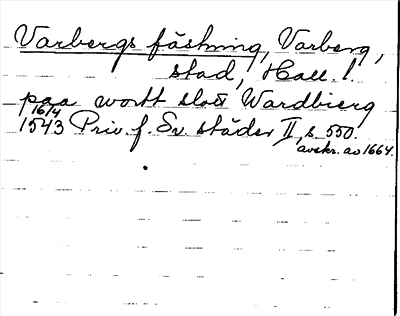 Varbergs fästning, Varberg,
stad, Hall. l.
paa wortt slott Wardbierg
16/4
1543 Priv. f. Sv. städer II, s. 550.
avskr. av 1664.